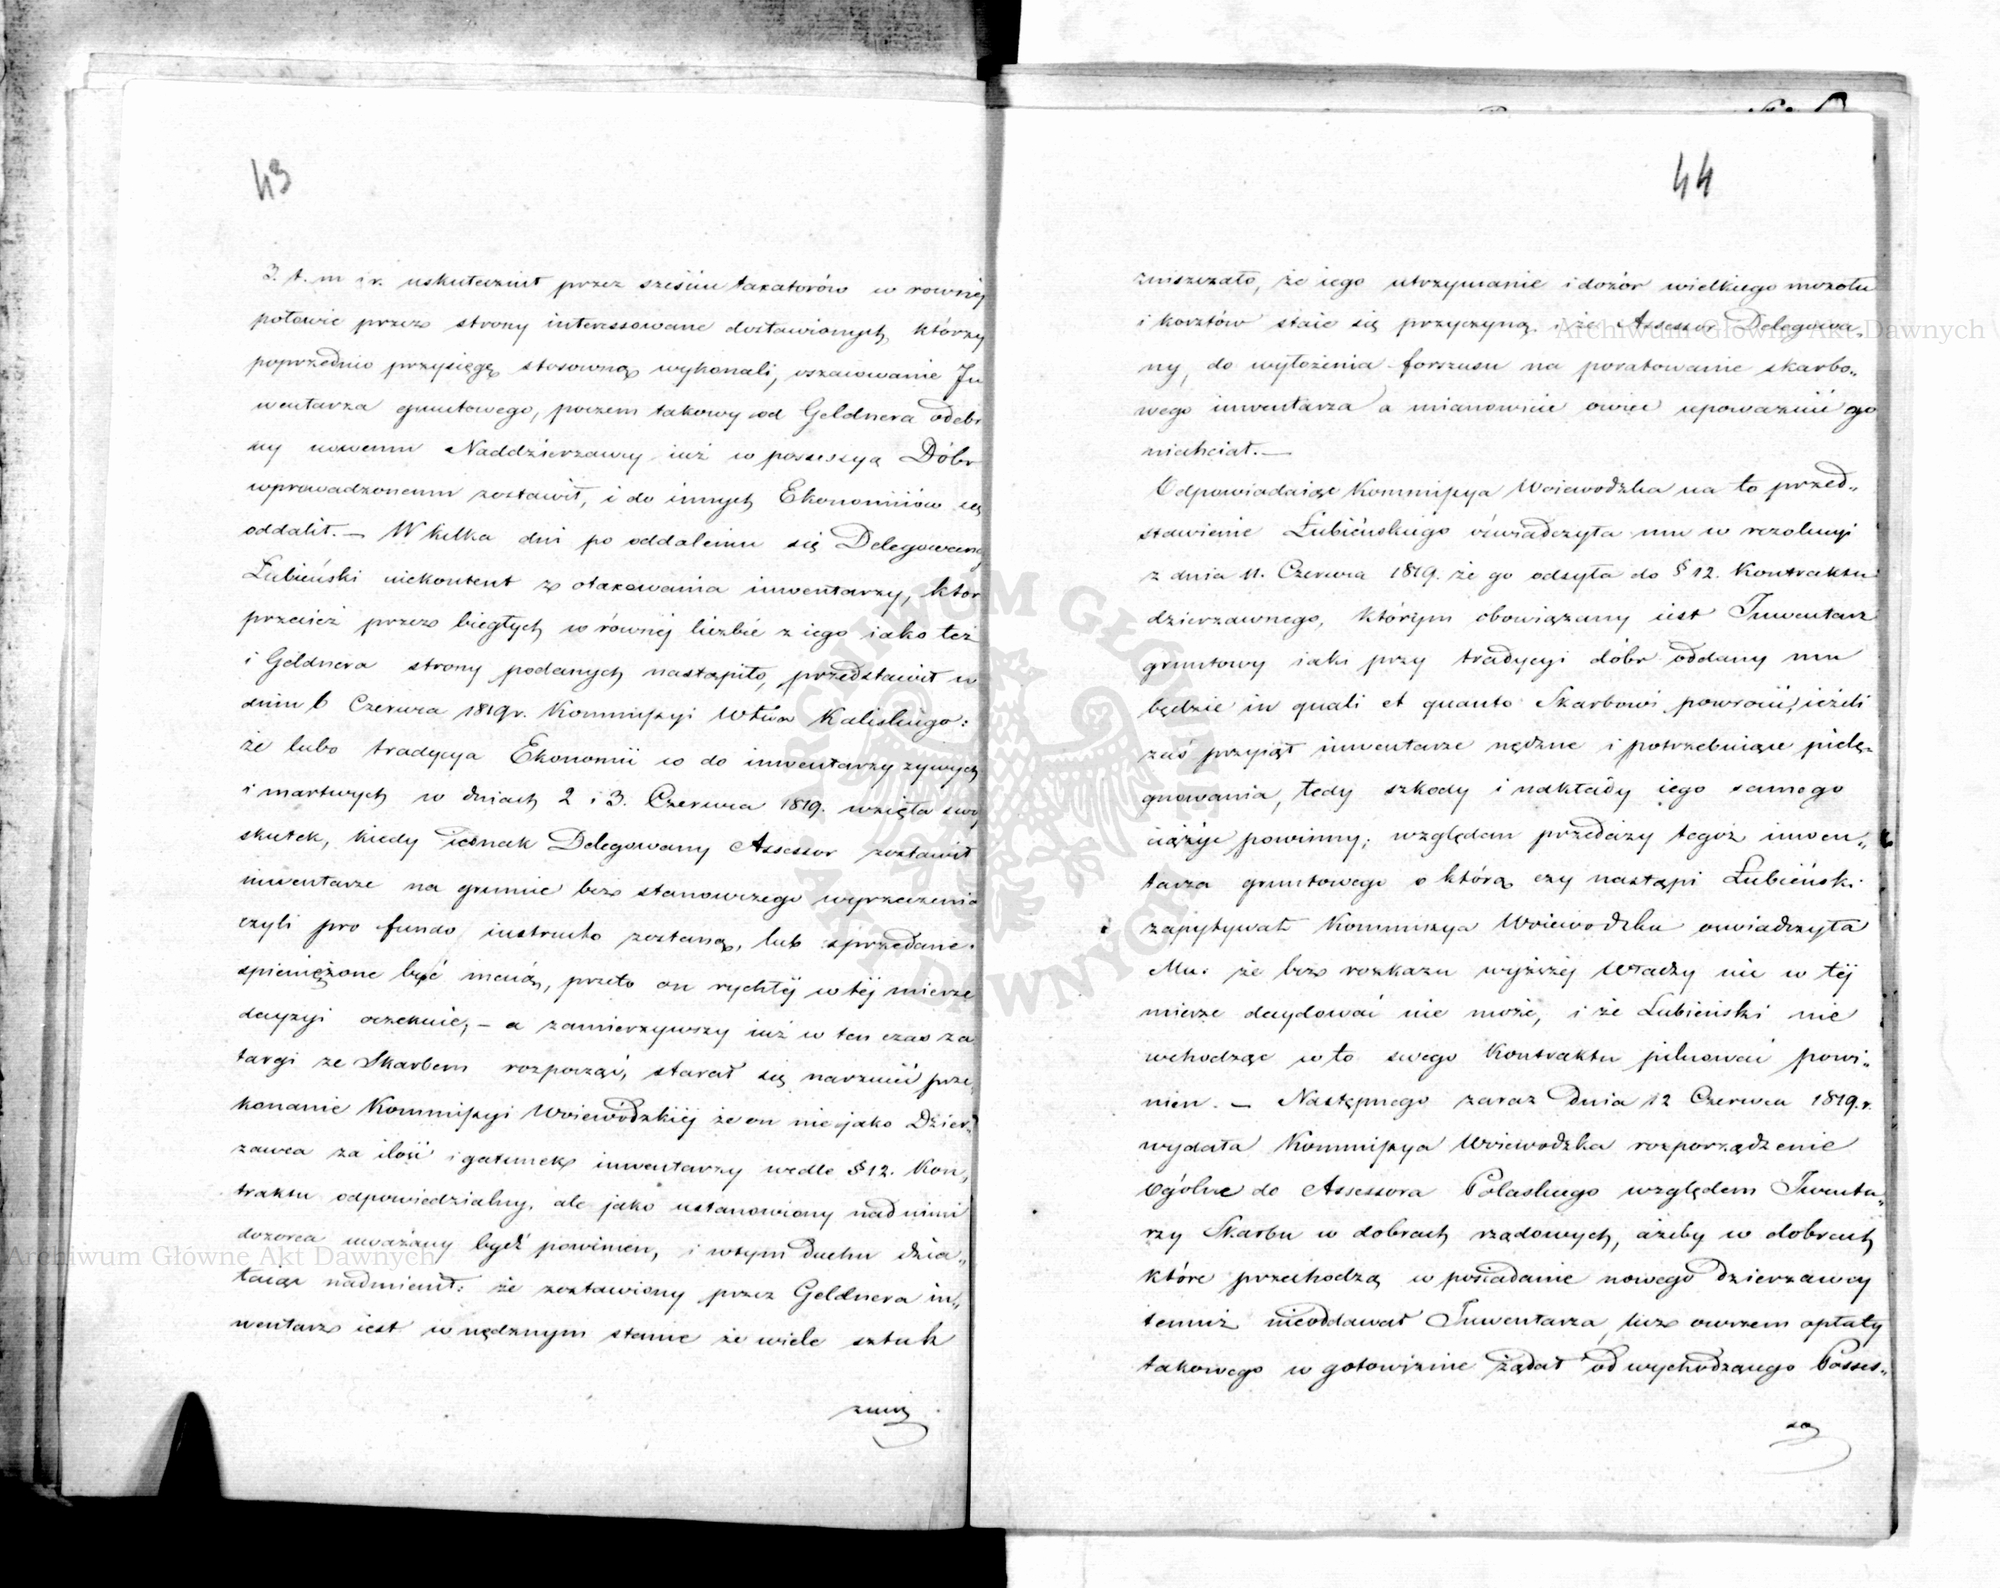 43
3. t. m i r. uskutecznił przez sześciu taxatorów w równéj
połowie przez strony interessowane dostawionych, którzy
poprzednio przysięgę stosowną wykonali, oszacowanie In
wentarza gruntowego, poczem takowy od Geldnera odebr
ny nowemu Naddzierzawcy iuż w possessyą Dóbr
wprowadzonemu zostawił, i do innych Ekonomiiów się
oddalił. — W kilka dni po oddaleniu się Delegowane
Łubieński niekontent z otaxowania inwentarzy, któr
przecież przez biegłych w równéj liczbie z iego iako też
i Geldnera strony podanych nastąpiło, przedstawił w
dniu 6 Czerwca 1819 r. Kommissyi Wtwa Kaliskiego:
że lubo tradycya Ekonomii co do inwentarzy zywych
i martwych w dniach 2 i 3. Czerwca 1819. wzięła swóy
skutek, kiedy iednak Delegowany Assessor zostawił
inwentarze na gruncie bez stanowczego wyrzeczenia
czyli pro fundo instructo zostaną, lub sprzedane
spieniężone być maią, przeto on rychłéj w téj mierze
decyzyi oczekuie; — a zamierzywszy iuż w ten czas za
targi ze Skarbem rozpocząć, starał się narzucić prze,
konanie Kommissyi Woiewódzkiéj że on nie jako Dzier,
zawca za ilość i gatunek inwentarzy wedle § 12. Kon,
traktu odpowiedzialny, ale jako ustanowiony nad nimi
dozorca uważany bydź powinien, i w tym duchu dzia„
łaiąc nadmienił: że zostawiony przez Geldnera in„
wentarz iest w nędznym stanie że wiele sztuk
znisz
44
zniszczało, że iego utrzymanie i dozór wielkiego mozołu
i kosztów staie się przyczyną i że Assessor Delegowa,
ny, do wyłożenia forszusu na poratowanie skarbo„
wego inwentarza a mianowicie owiec upoważnić go
niechciał. —
Odpowiadaiąc Kommissya Woiewodzka na to przed„
stawienie Łubieńskiego oświadczyła mu w rezolucyi
z dnia 11. Czerwca 1819. że go odsyła do § 12. Kontraktu
dzierzawnego, którym obowiązany iest Inwentarz
gruntowy iaki przy tradycyi dóbr oddany mu
będzie in quali et quanto Skarbowi powrócić, ieżeli
zaś przyiął inwentarze nędzne i potrzebuiące pielę„
gnowania, tedy szkody i nakłady iego samego
ciążyć powinny; względem przedaży tegoż inwen„
tarza gruntowego o którą czy nastąpi Łubieński
zapytywał Kommissya Woiewodzka oswiadczyła
Mu: że bez rozkazu wyższéj Władzy nic w téj
mierze decydować nie może, i że Łubieński nie
wchodząc w to swego Kontraktu pilnować powi„
nien. — Następnego zaraz Dnia 12 Czerwca 1819. r.
wydała Kommissya Woiewodzka rozporządzenie
Ogólne do Assessora Polaskiego względem Iwenta„
rzy Skarbu w dobrach rządowych, ażeby w dobrach
które przechodzą w posiadanie nowego dzierzawcy
temuż nieoddawał Inwentarza, lecz owszem opłaty
takowego w gotowiznie żądał od wychodzącego Posses„
so